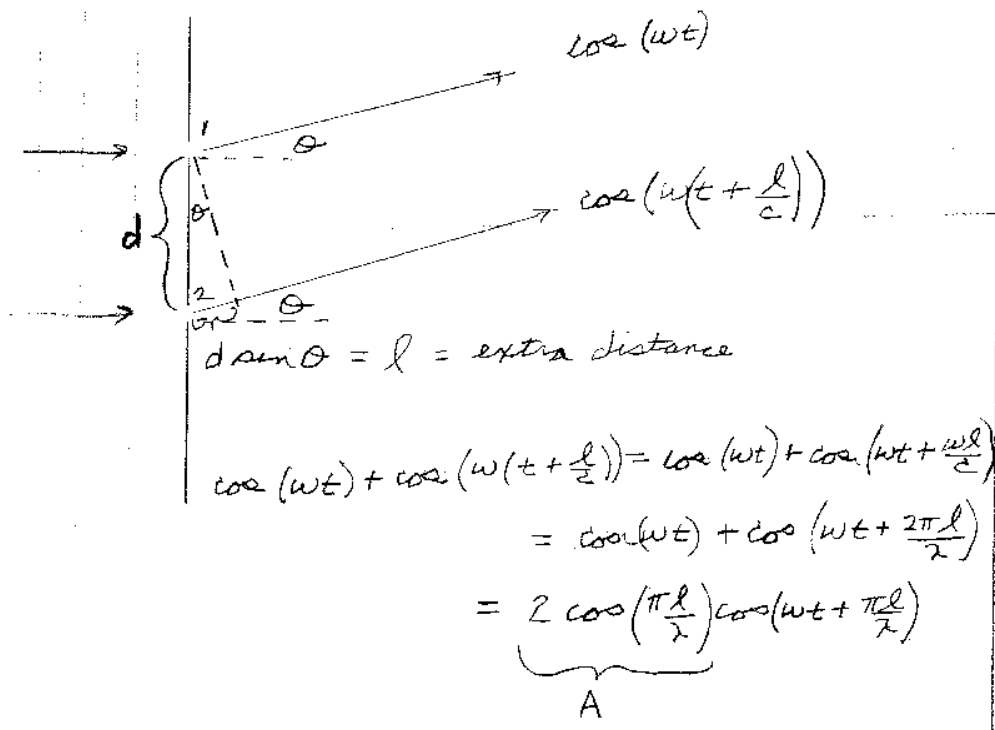 cos (ωt)
1
θ
cos(ω(t + l/c))
θ
d
2
θ
d sin θ = l = extra distance
cos (ωt) + cos (ω(t + l/c)) = cos (ωt) + cos (ωt + ωl/c)
= cos(ωt) + cos (ωt + 2πl/λ)
= 2 cos(πl/λ) cos(ωt + πl/λ)
A